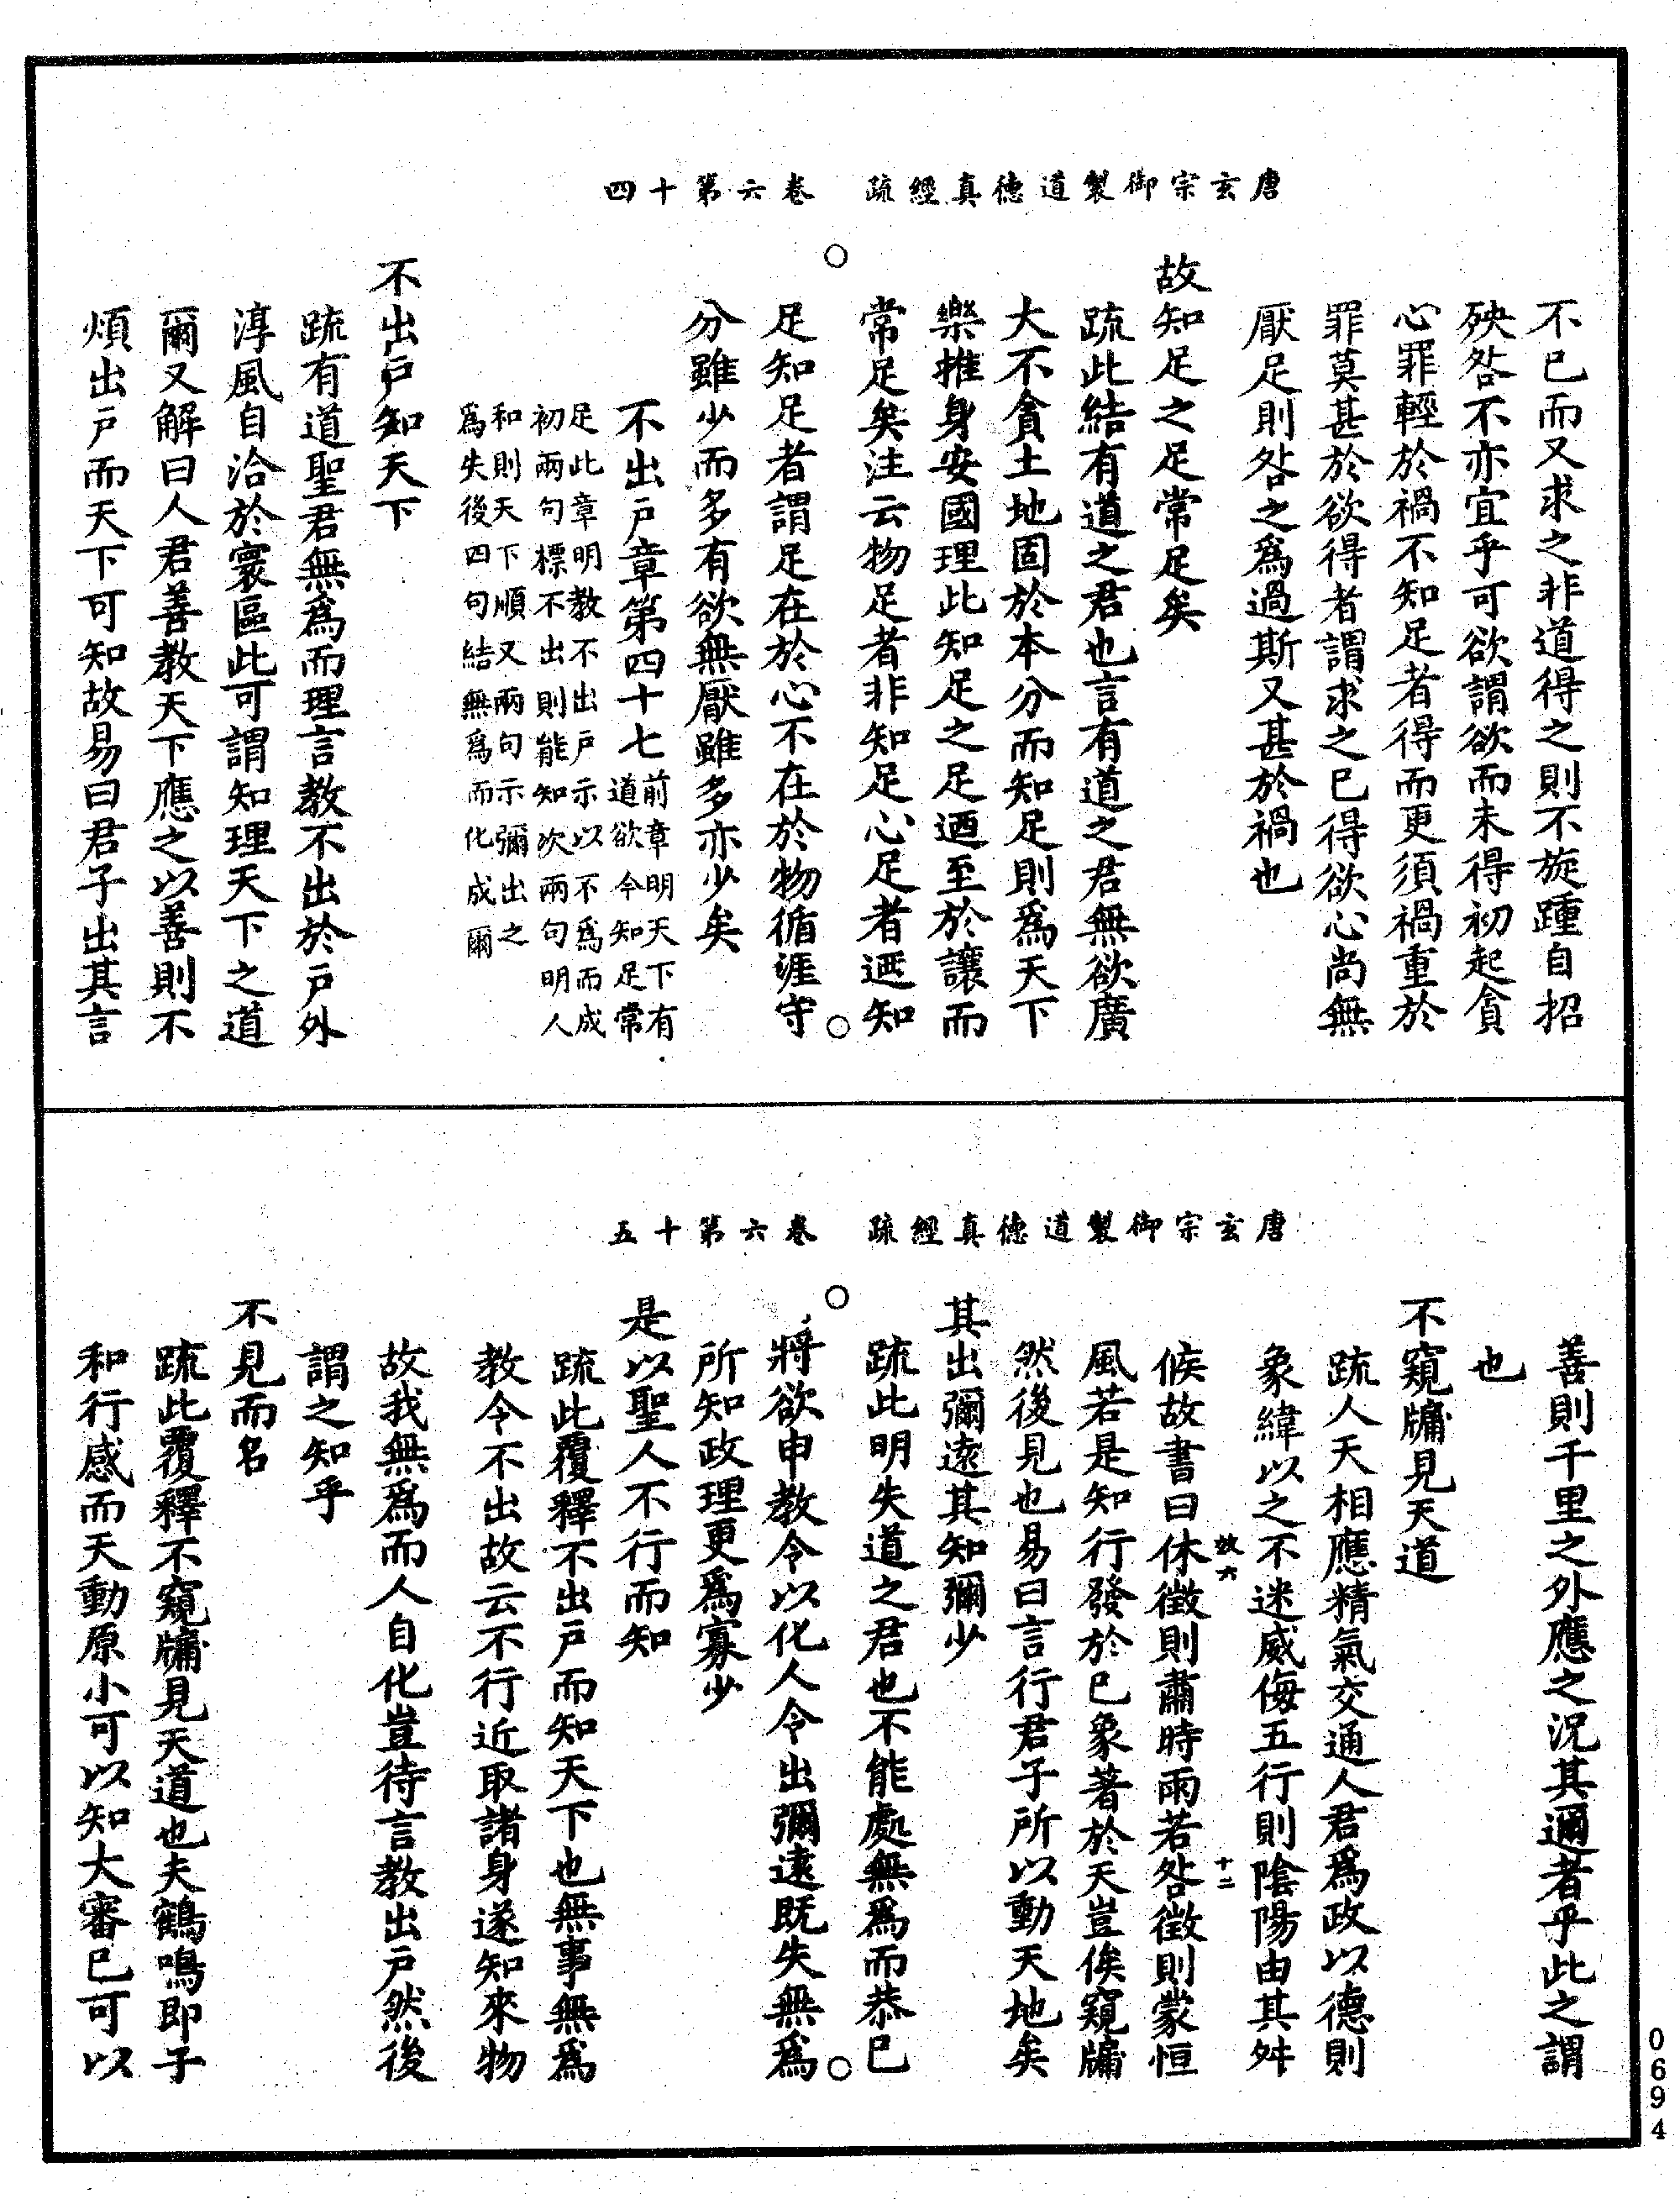 唐玄宗御製道德真經疏　卷六第十四
不已而又求之非道得之則不旋踵自招
殃咎不亦宜乎可欲謂欲而未得初起貪
心罪輕於禍不知足者得而更須禍重於
罪莫甚於欲得者謂求之已得欲心尚無
厭足則咎之爲過斯又甚於禍也
故知足之足常足矣
疏此結有道之君也言有道之君無欲廣
大不貪土地固於本分而知足則爲天下
樂推身安國理此知足之足迺至於讓而
常足矣注云物足者非知足心足者迺知
足知足者謂足在於心不在於物循涯守
分雖少而多有欲無厭雖多亦少矣
不出戶章第四十七
前章明天下有
道欲令知足常
足此章明教不出戶示以不爲而成
初兩句標不出則能知次兩句明人
和則天下順又兩句示彌出之
爲失後四句結無爲而化成爾
不出戶知天下
疏有道聖君無爲而理言教不出於戶外
淳風自洽於寰區此可謂知理天下之道
爾又解曰人君善教天下應之以善則不
煩出戶而天下可知故易曰君子出其言
唐玄宗御製道德真經疏　卷六第十五
善則千里之外應之況其邇者乎此之謂
也
不窺牖見天道
疏人天相應精氣交通人君爲政以德則
象緯以之不迷威侮五行則陰陽由其舛
效六　十二
候故書曰休徵則肅時雨若咎徵則蒙恒
風若是知行發於已象著於天豈俟窺牖
然後見也易曰言行君子所以動天地矣
其出彌遠其知彌少
疏此明失道之君也不能處無爲而恭已
將欲申教令以化人令出彌遠既失無爲
所知政理更爲寡少
是以聖人不行而知
疏此覆釋不出戶而知天下也無事無爲
教令不出故云不行近取諸身遂知來物
故我無爲而人自化豈待言教出戶然後
謂之知乎
不見而名
疏此覆釋不窺牖見天道也夫鶴鳴即子
和行感而天動原小可以知大審已可以
0694